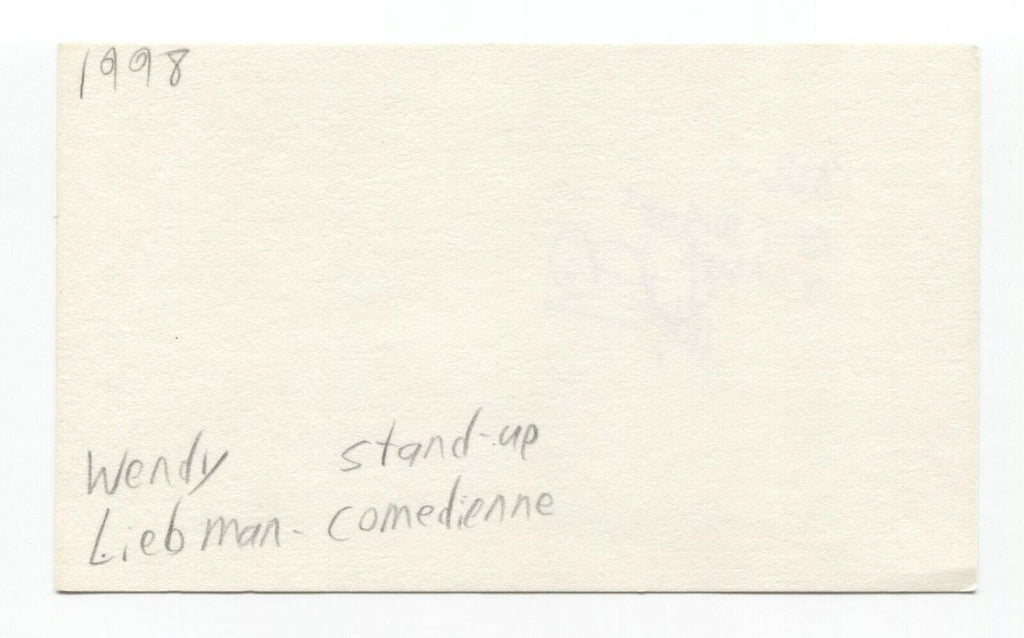 1998
Wendy stand-up
Liebman- comedienne